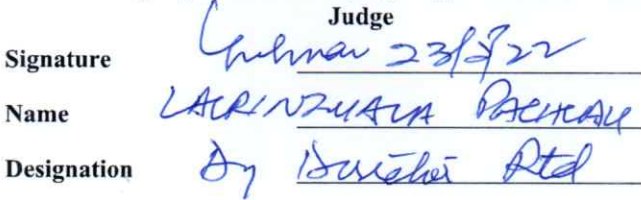 Judge
Signature 23/3/22
Name LALRINZUALA PACHUAU
Designation Dy Director Rtd